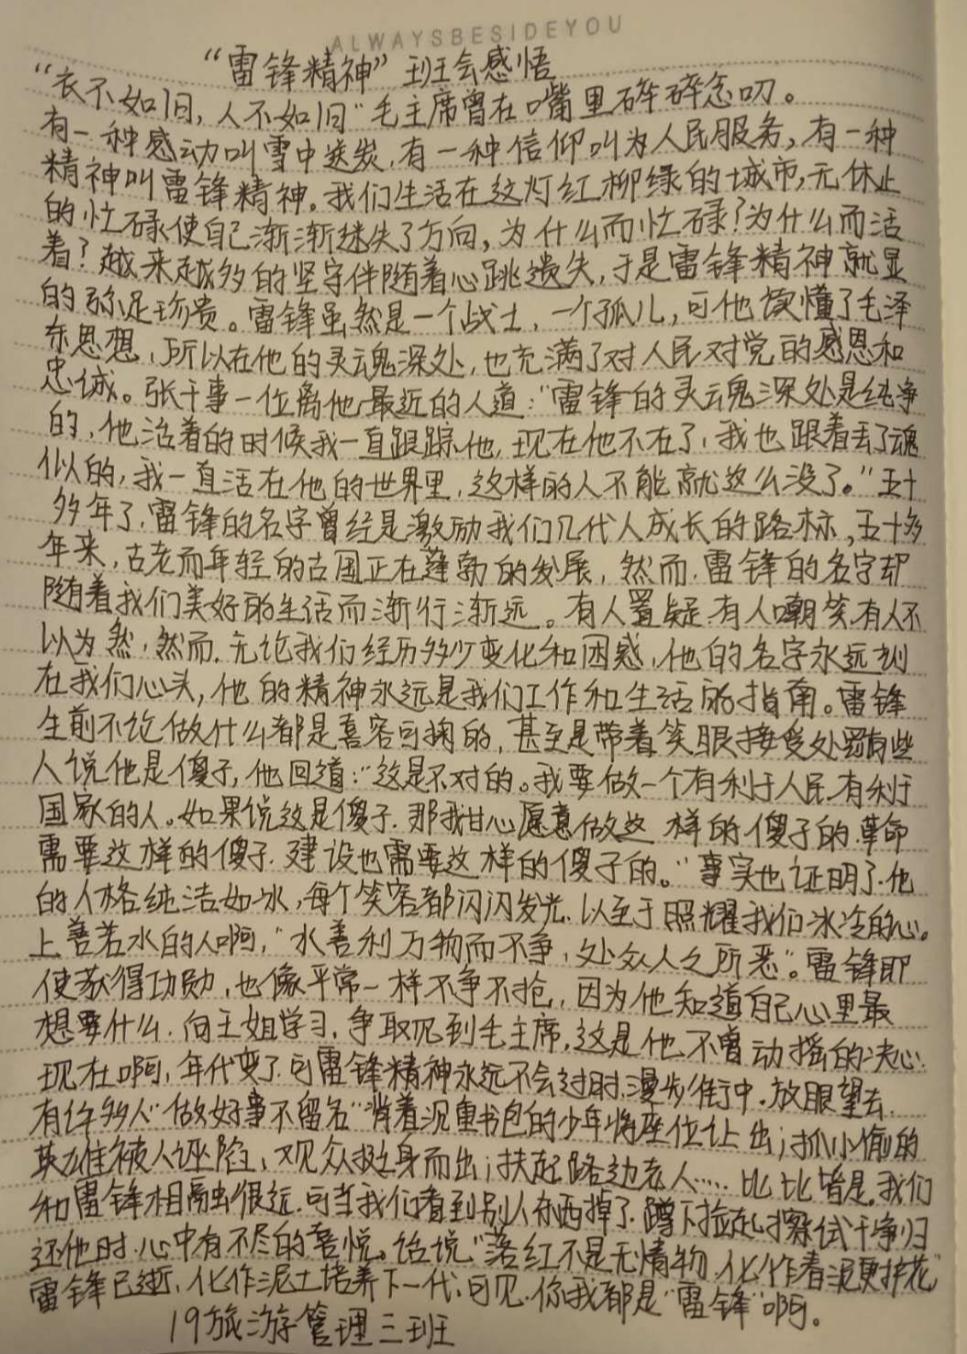 ALWAYSBESIDEYOU
“雷锋精神”班会感悟
“衣不如旧，人不如旧”毛主席曾在嘴里碎碎念叨。
有一种感动叫雪中送炭，有一种信仰叫为人民服务，有一种
精神叫雷锋精神。我们生活在这灯红柳绿的城市，无休止
的忙碌使自己渐渐迷失了方向，为什么而忙碌？为什么而活
着？越来越多的坚守伴随着心跳遗失，于是雷锋精神就显
的弥足珍贵。雷锋虽然是一个战士，一个孤儿，可他读懂了毛泽
东思想，所以在他的灵魂深处，也充满了对人民对党的感恩和
忠诚。张干事一位离他最近的人道：“雷锋的灵魂深处是纯净
的，他活着的时候我一直跟踪他，现在他不在了，我也跟着丢了魂
似的，我一直活在他的世界里，这样的人不能就这么没了。”五十
多年了，雷锋的名字曾经是激励我们几代人成长的路标，五十多
年来，古老而年轻的古国正在蓬勃的发展，然而，雷锋的名字却
随着我们美好的生活而渐行渐远。有人置疑，有人嘲笑，有人不
以为然，然而，无论我们经历多少变化和困惑，他的名字永远刻
在我们心头，他的精神永远是我们工作和生活的指南。雷锋
生前不论做什么都是喜容可掬的，甚至是带着笑眼接受处罚有些
人说他是傻子，他回道：“这是不对的。我要做一个有利于人民，有利于
国家的人。如果说这是傻子，那我甘心愿意做这样的傻子的，革命
需要这样的傻子，建设也需要这样的傻子的。”事实也证明了，他
的人格纯洁如冰，每个笑容都闪闪发光，以至于照耀我们冰冷的心。
上善若水的人啊，“水善利万物而不争，处众人之所恶”。雷锋即
使获得功勋，也像平常一样不争不抢，因为他知道自己心里最
想要什么，向王姐学习，争取见到毛主席，这是他不曾动摇的决心。
现在啊，年代变了，可雷锋精神永远不会过时，漫步街中，放眼望去，
有许多人“做好事不留名”背着沉重书包的少年将座位让出；抓小偷的
英雄被人诬陷，观众挺身而出；扶起路边老人……比比皆是。我们
和雷锋相隔虽很远，可当我们看到别人东西掉了，蹲下捡起，擦试干净归
还他时，心中有不尽的喜悦。俗说“落红不是无情物，化作春泥更护花”
雷锋已逝，化作泥土培养下一代，可见，你我都是“雷锋”啊。
19旅游管理三班